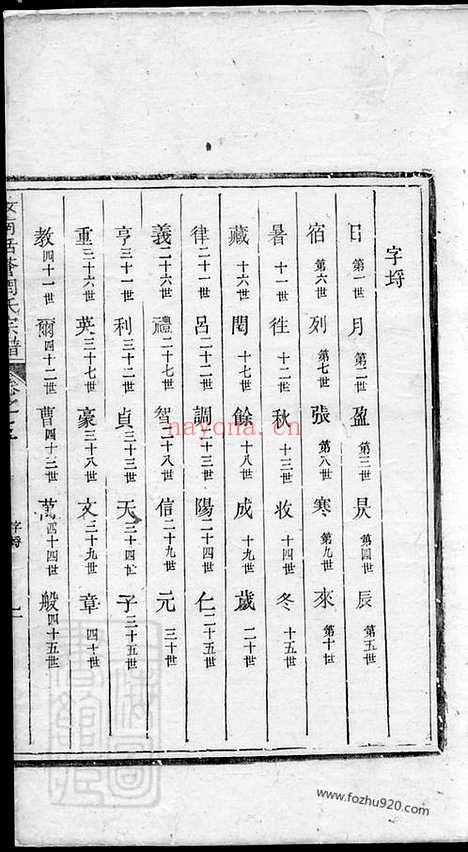 字埒
日第一世月第二世盈第三世昃第四世辰第五世
宿第六世列第七世張第八世寒第九世來第十世
暑十一世往十二世秋十三世收十四世冬十五世
藏十六世閏十七世餘十八世成十九世歲二十世
律二十一世呂二十二世調二十三世陽二十四世仁二十五世
義二十六世禮二十七世智二十八世信二十九世元三十世
亨三十一世利三十二世貞三十三世天三十四世子三十五世
重三十六世英三十七世豪三十八世文三十九世章四十世
教四十一世爾四十二世曹四十三世萬四十四世般四十五世
氏宗譜
字埒
nayona.cn
www.fozhu920.com